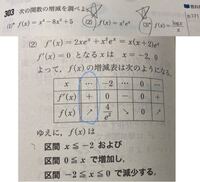 303 次の関数の増減を調べよ。
(1)* f(x)=x⁴-8x²+5 (2) f(x)=x²eˣ (3)* f(x)=log x/x
(2) f'(x)=2xeˣ+x²eˣ=x(x+2)eˣ
f'(x)=0 となる x は x=-2, 0
よって，f(x) の増減表は次のようになる。
x … -2 … 0 …
f'(x) + 0 - 0 +
f(x) ↗ 4/e² ↘ 0 ↗
ゆえに，f(x) は
区間 x≦-2 および
区間 0≦x で増加し，
区間 -2≦x≦0 で減少する。